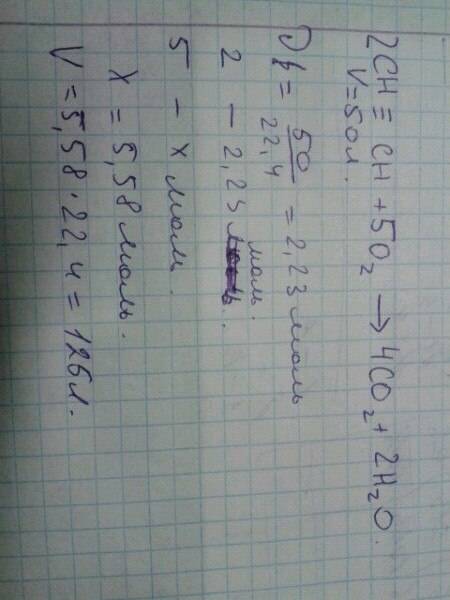 2CH ≡ CH + 5O₂ → 4CO₂ + 2H₂O.
V = 50л.
= 50/22,4 = 2,23 моль
2 – 2,23 моль.
5 – x моль.
x = 5,58 моль.
V = 5,58 · 22,4 = 125л.